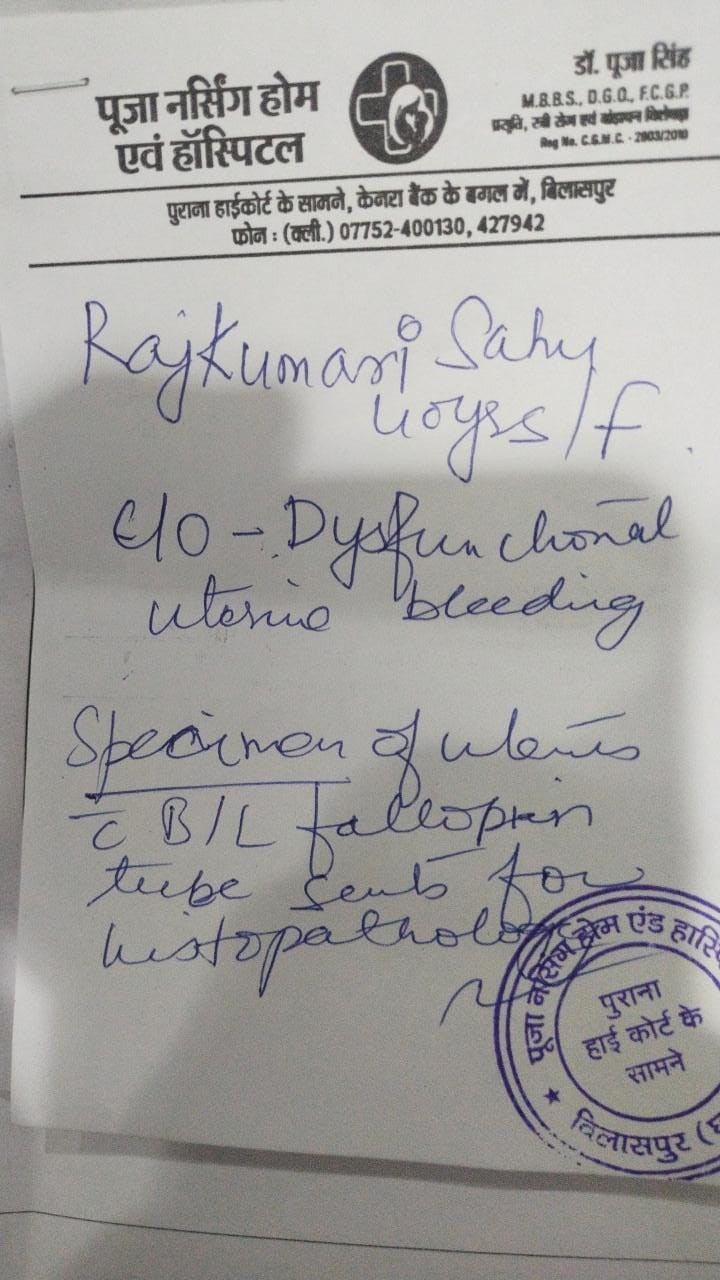 पूजा नर्सिंग होम
एवं हॉस्पिटल
डॉ. पूजा सिंह
M.B.B.S., D.G.O., F.C.G.P.
प्रसुति, स्त्री रोग एवं बांझपन विशेषज्ञ
Reg No. C.G.M.C. - 2903/2010
पुराना हाईकोर्ट के सामने, केनरा बैंक के बगल में, बिलासपुर
फोन : (क्ली.) 07752-400130, 427942
Rajkumari Sahu
40yrs/F
C/O - Dysfunctional
uterine bleeding
Specimen of uterus
c̄ B/L fallopian
tube sent for
histopathology
पूजा नर्सिंग होम एंड हास्पि
पुराना
हाई कोर्ट के
सामने
★ बिलासपुर (